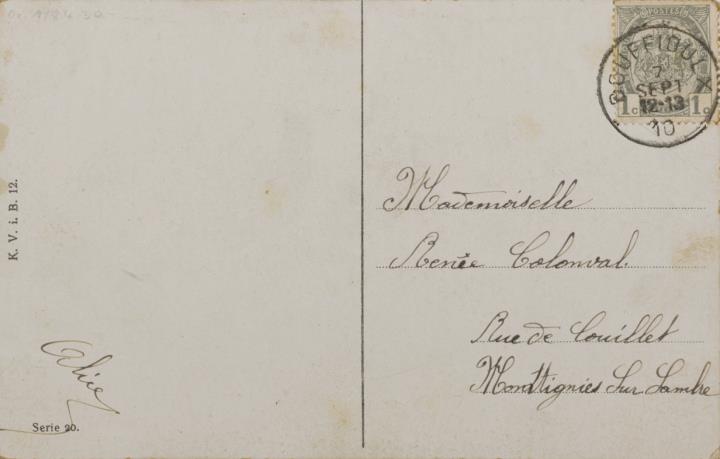 K. V. i. B. 12.
Alice
Serie 20.
POSTES
1c 1c
BOUFFIOULX
7
SEPT
12-13
10
Mademoiselle
Renée Colonval.
Rue de Couillet
Montignies Sur Sambre